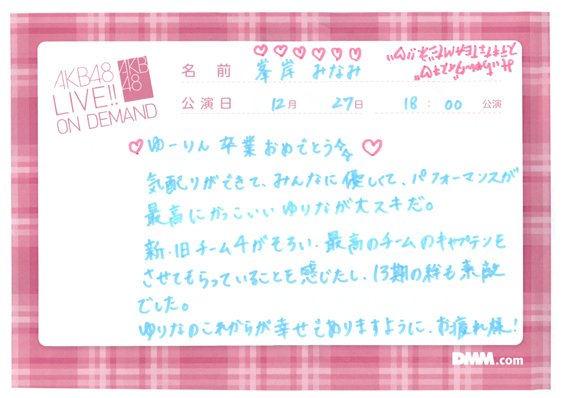 AKB48
LIVE!!
ON DEMAND
AKB
48
名前 峯岸 みなみ
公演日 12月 27日 18:00 公演
ゆーりん 卒業おめでとう
気配りができて、みんなに優しくて、パフォーマンスが
最高にかっこいいゆりなが大スキだ。
新・旧チーム4がそろい、最高のチームのキャプテンを
させてもらっていることを感じたし、13期の絆も素敵
でした。
ゆりなのこれからが幸せでありますように、お疲れ様!
DMM.com